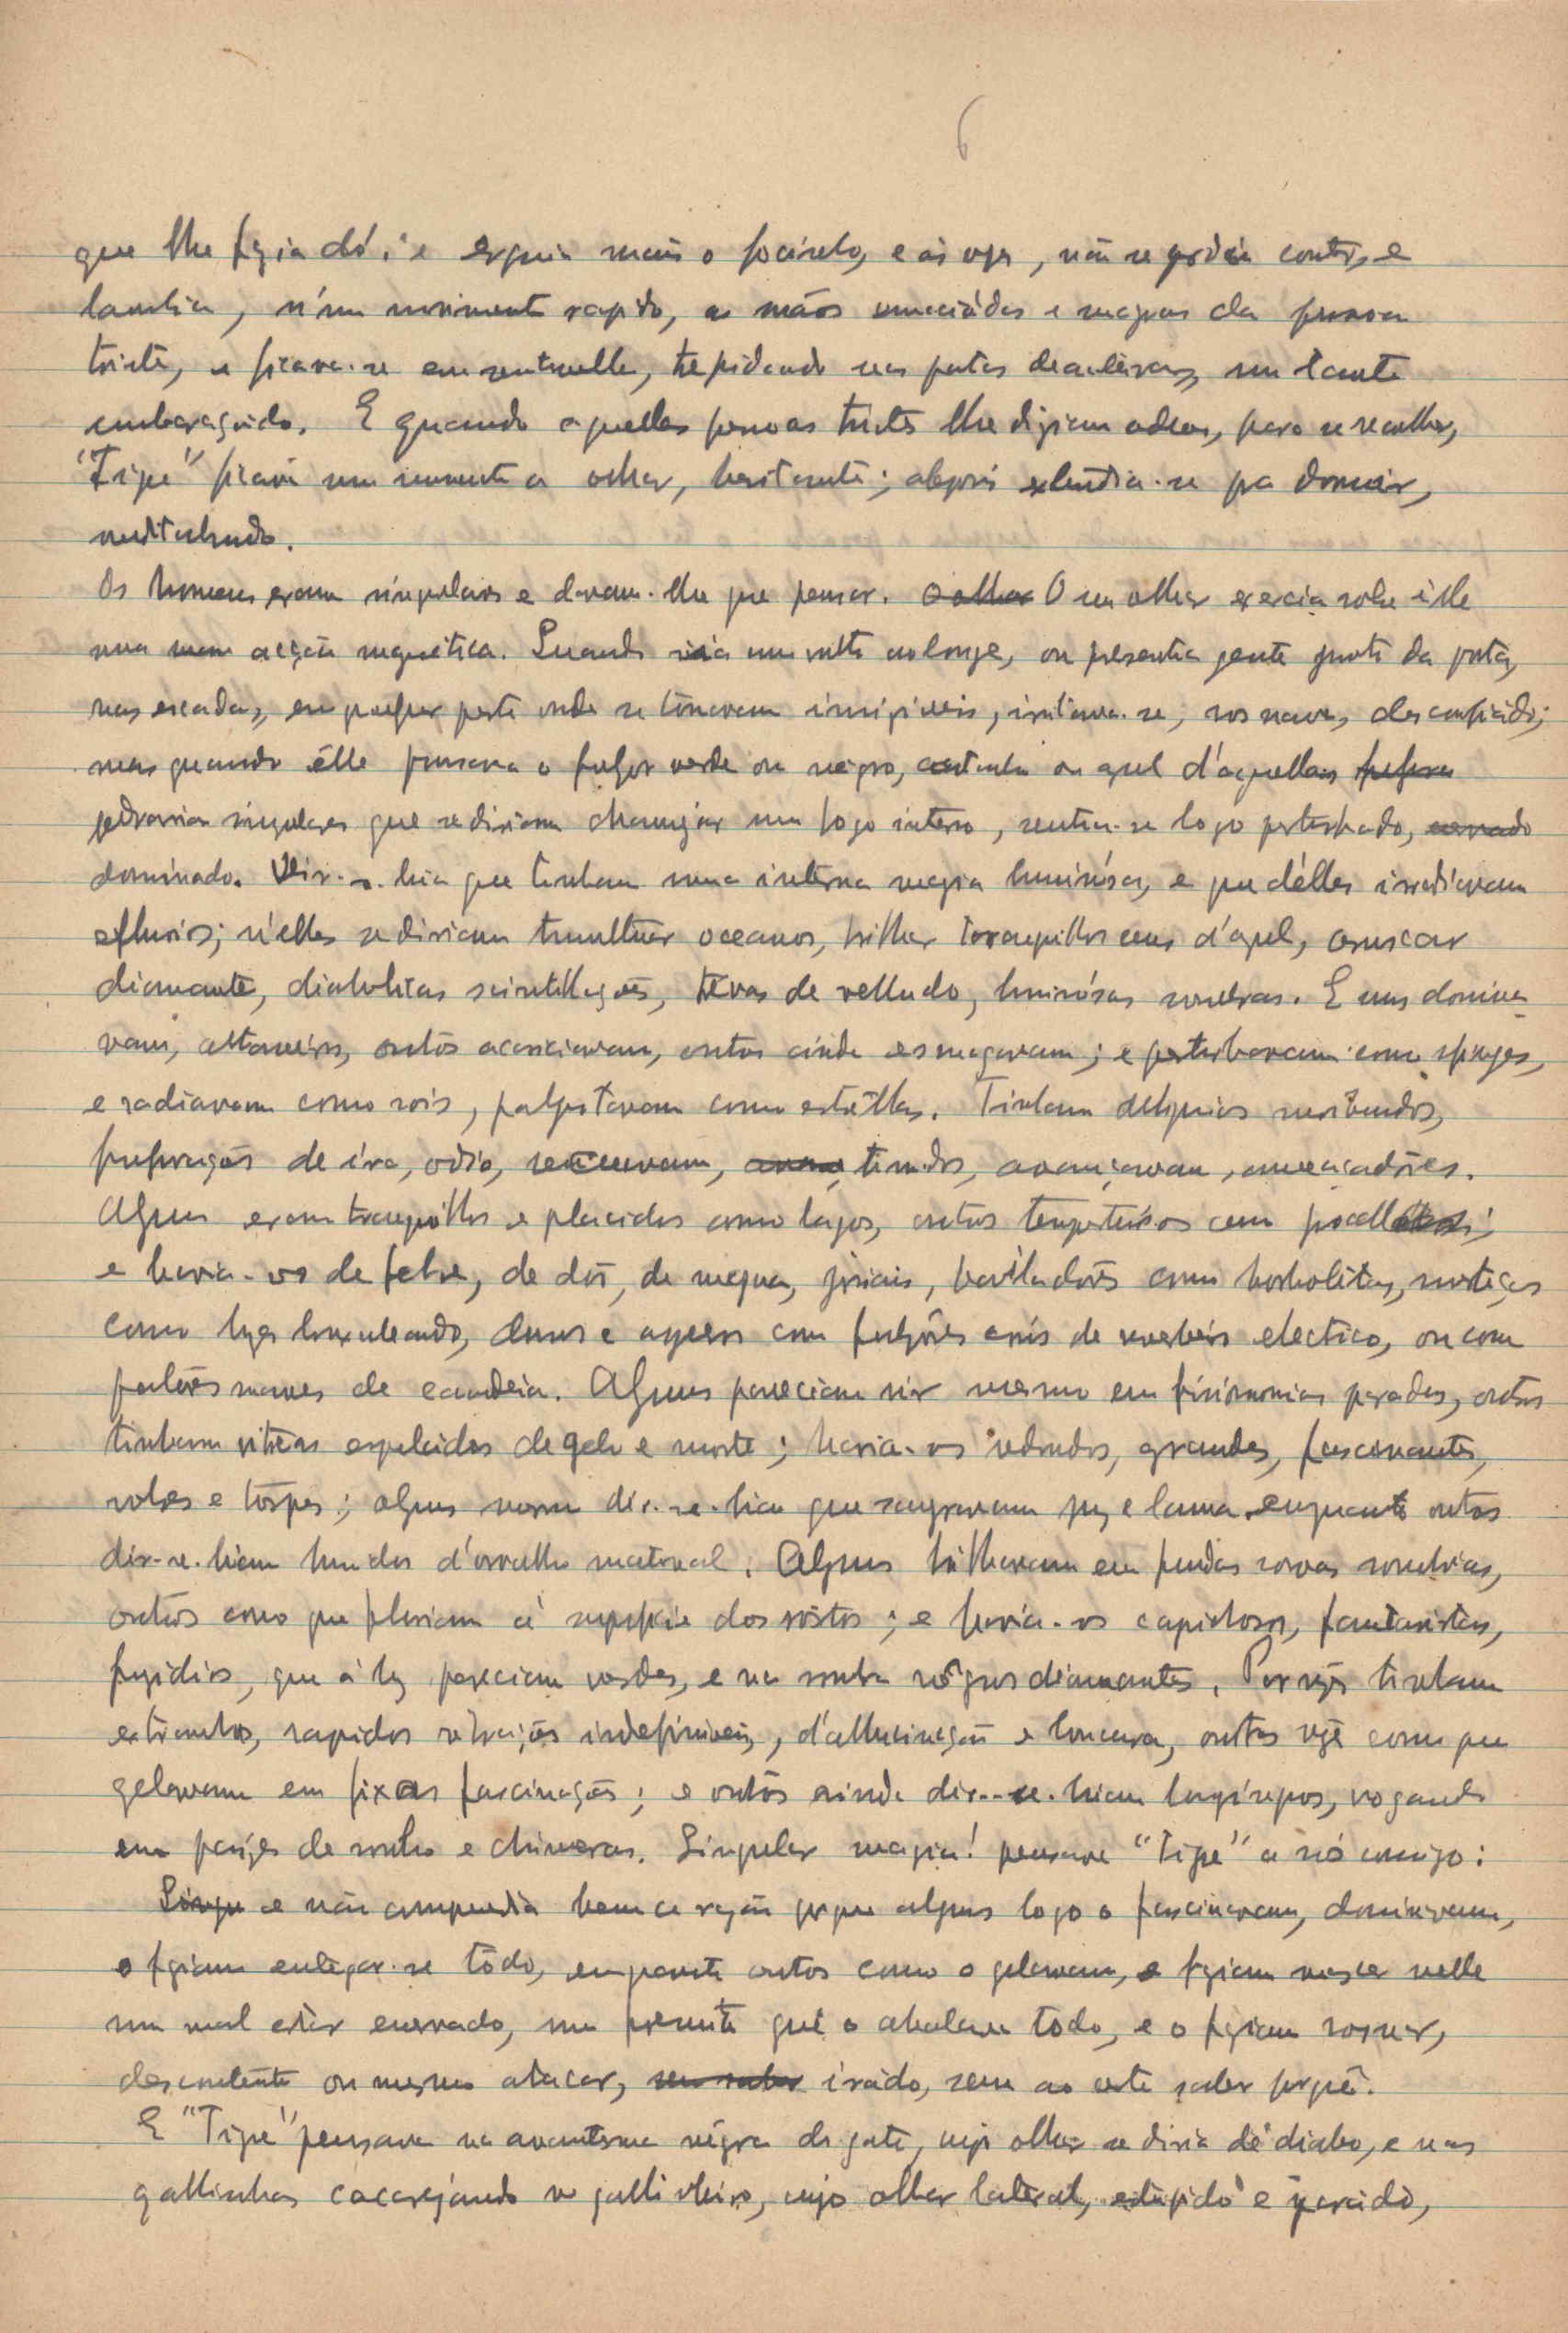 6
que lhe fazia dó; e erguia mais o focinho, e ás vezes, não se podia conter, e
lambia, n'um movimento rapido, as mãos emaciádas e magras da pessoa
triste, e ficava-se em sentinella, trepidando nas patas deanteiras, um tanto
embaraçádo. E quando aquellas pessoas tristes lhe diziam adeus, para se recolher,
"Tigre" ficava um momento a olhar, hesitante; depois extendia-se pra dormir,
meditabundo.
Os homens eram singulares e davam-lhe que pensar. O olhar O seu olhar exercia sobre êlle
uma acção magnética. Quando via um vulto ao longe, ou presentia gente junto da porta,
nas escadas, em qualquer parte onde se tornavam invisiveis, irritava-se, rosnava, desconfiádo;
mas quando êlle o fulgor verde ou negro, castanho ou azul d'aquellas
pedrarias singulares que se diriam chamejár um fogo interno, sentia-se logo perturbado,
dominado. Dir-se-hia que tinham uma interna magia luminósa, e que d'élles irradiavam
efluvios; n'elles se diriam tumultuar oceanos, brilhar tranquillos ceus d'azul, coruscar
diamante, diabolicas scintillações, trevas de velludo, luminósas sombras. E uns domina-
vam, altaneiros, outros acariciavam, outros ainda esmagavam; e perturbavam como esfinges,
e radiavam como sois, palpitavam como estrêllas. Tinham deliquios moribundos,
fulgurações de ira, odio, recuavam, timidos, avançavam, ameaçadôres.
Alguns eram tranquillos e placidos como lagos, outros tempestuósos como procellas;
e havia-os de febre, de dôr, de magua, joviais, bailadôres como borboletas, mortiços
como luzes bruxuleando, duros e agueos com fulgôres crús de reverbéro electrico, ou com
palôres suaves de candeia. Alguns pareciam rir mesmo em fisionomias paradas, outros
tinham vitreas espelhidas de gelo e morte; havia-os redondos, grandes, fascinantes,
nobres e tôrpes; alguns mesmo dir-se-hia que sangravam puz e lama enquanto outros
dir-se-hiam humidos d'orvalho matinal. Alguns brilhavam em fundas covas sombrias,
outros como que fluiam á superficie dos rôstos; e havia-os caprichosos, fantasistas,
fugidios, que á luz pareciam verdes, e na sombra négros diamantes. Por vezes tinham
extranhos, rapidos indefiniveis, d'allucinação e loucura, outras vezes como que
gelavam em fixas fascinações; e outros ainda dir-se-hiam longinquos, vogando
em paízes de sonho e chimeras. Singular magia! pensava "Tigre" a sós comsigo:
Singu e não comprendia bem a razão porque alguns logo o fascinavam, dominavam,
o faziam entregar-se tôdo, emquanto outros como o gelavam, e faziam nascer nelle
um mal estár enervado, um que o abalava todo, e o faziam rosnar,
descontente ou mesmo atacar, sem saber iraido, sem ao certo saber porquê.
E "Tigre" pensava na avantesma négra do gato, cujo olhar se diria de diabo, e nas
gallinhas cacarejando no gallinheiro, cujo olhar lateral, estupido e parado,